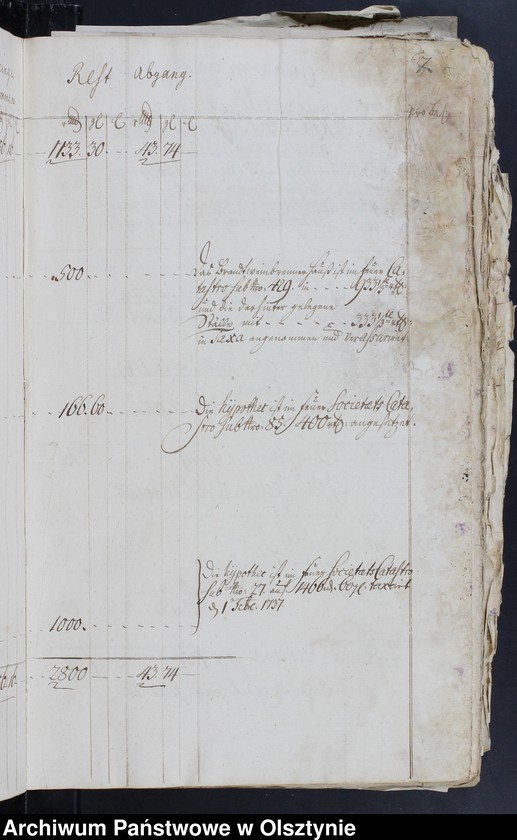 7
Rest Abgang.
1133. 30 43. 74
500 Das Brandtweinbrenner Hauß ist im feuer Ca-
tastro sub No: 429. in 933 1/3
und die darhinter gelegene
Ställe mit 333 1/3
in Taxa angenommen und
166. 60 Die hypothec ist im feuer Societaets Cata-
stro sub No: 83. 400 angesetzet.
Die hypothec ist im feuer Societaets Catastro
sub No: 27. auf 1466 60 taxiret
d 1 1737.
1000.
2800 43. 74
Archiwum Państwowe w Olsztynie